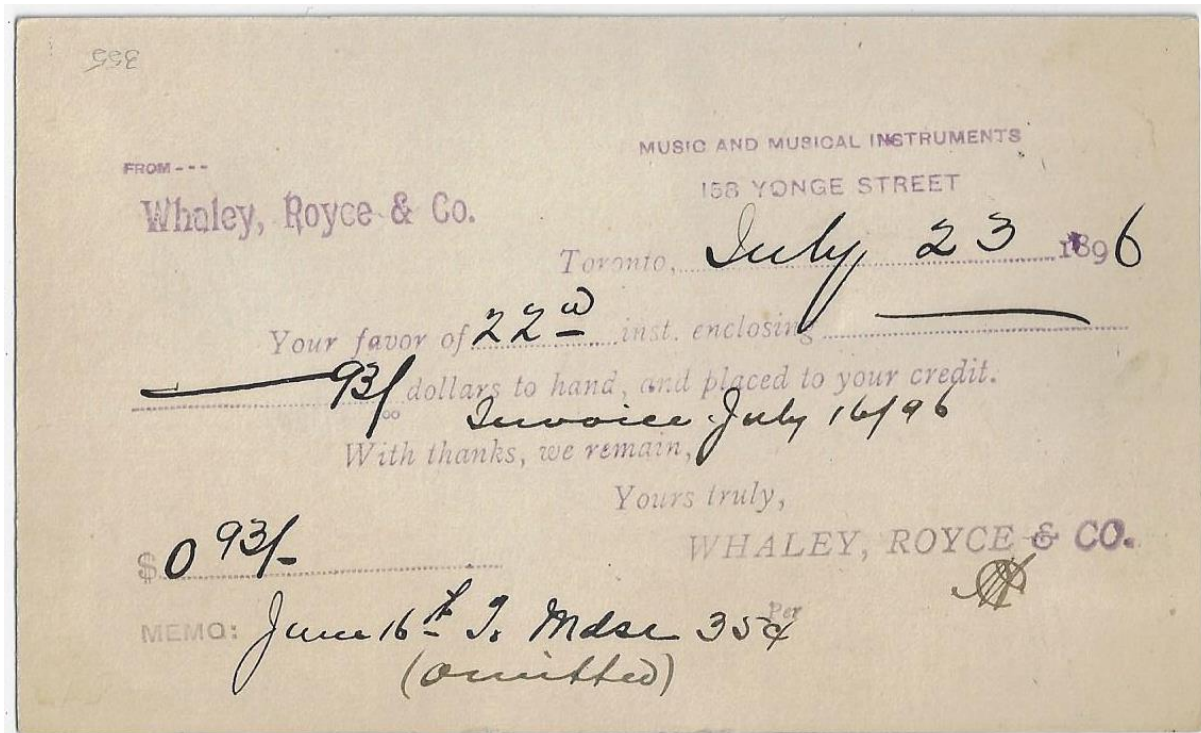 355
MUSIC AND MUSICAL INSTRUMENTS
FROM---
158 YONGE STREET
Whaley, Royce & Co.
Toronto, July 23 1896
Your favor of 22d inst. enclosing
93/00 dollars to hand, and placed to your credit.
Invoice July 16/96
With thanks, we remain,
Yours truly,
WHALEY, ROYCE & CO.
$ 0 93/-
Per
MEMO: June 16th I. Mdse 35¢
(omitted)